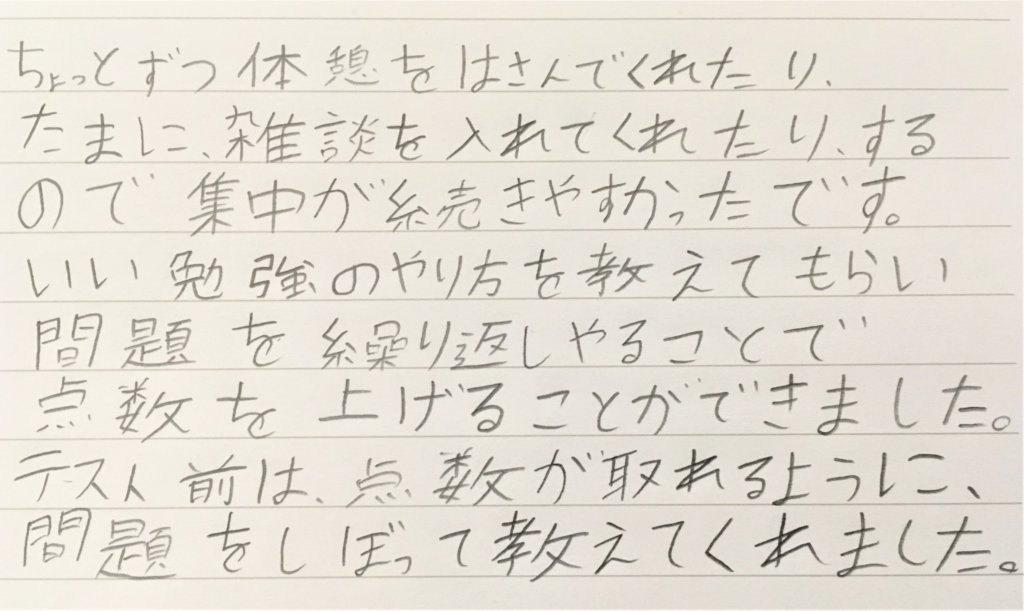 ちょっとずつ体憩をはさんでくれたり、
たまに、雑談を入れてくれたり、する
ので集中が続きやすかったです。
いい勉強のやり方を教えてもらい
問題を繰り返しやることで
点数を上げることができました。
テスト前は、点数が取れるように、
問題をしぼって教えてくれました。